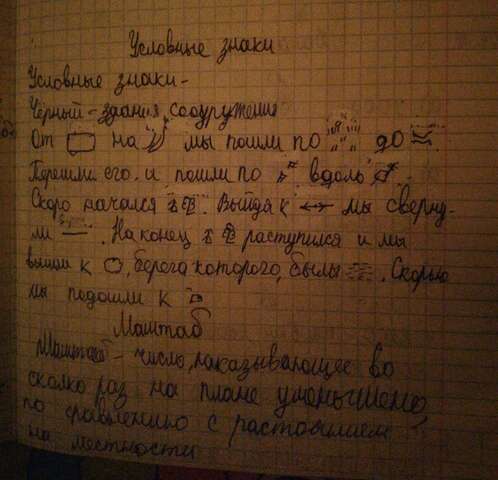 Условные знаки
Условные знаки-
Чёрный-здания, сооружения
От на мы пошли по до
Перешли его и пошли по вдоль
Скоро начался . Выйдя к мы сверну-
ли . На конец раступился и мы
вышли к , берега которого, были . Скоро
мы подошли к
Маштаб
Маштаб - число, показывающее во
сколко раз на плане уменьшено
по сравнению с растоянием
на местности